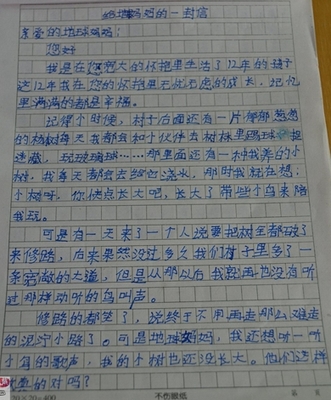 给地球妈妈的一封信
亲爱的地球妈妈：
您好
我是在您宽大的怀抱里生活了12年的孩子
这12年我在您的怀抱里无忧无虑的成长，记忆
里满满的都是幸福。
记得小时候，村子后面还有一片郁郁葱葱
的杨树每天我都会和小伙伴去树林里捉
迷藏，玩玻璃球……那里面还有一种我养的小
树，我每天都会去给它浇水，那时我就在想：
小树呀，你快点长大吧，长大了带些小鸟来陪
我玩。
可是有一天来了一个人说要把树全都砍了
来修路，后来果然没过多久我们村子里多了一
条宽敞的大道，但是从那以后我就再也没有听
过那样动听的鸟叫声。
修路的都笑了，说终于不用再走那么难走
的泥泞小路了。可是地球妈妈，我还想听一听
小鸟的歌声，我的小树也还没长大。他们这样
做是的对吗？
20×20=400
不伤眼纸
第 页